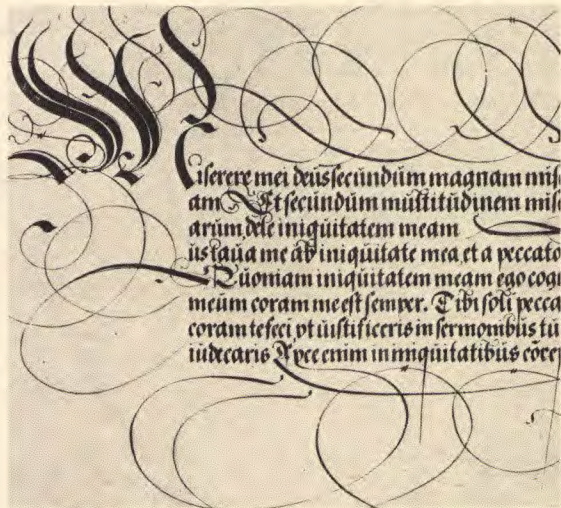 Miserere mei deus secundum magnam mis
am Et secundum multitudinem mise
arum dele iniquitatem meam
us laua me ab iniquitate mea et a peccato
Quoniam iniquitatem meam ego cogn
meum coram me est semper. Tibi soli pecca
coram te feci vt iustificeris in sermonibus tu
iudicaris enim in iniquitatibus cōcep